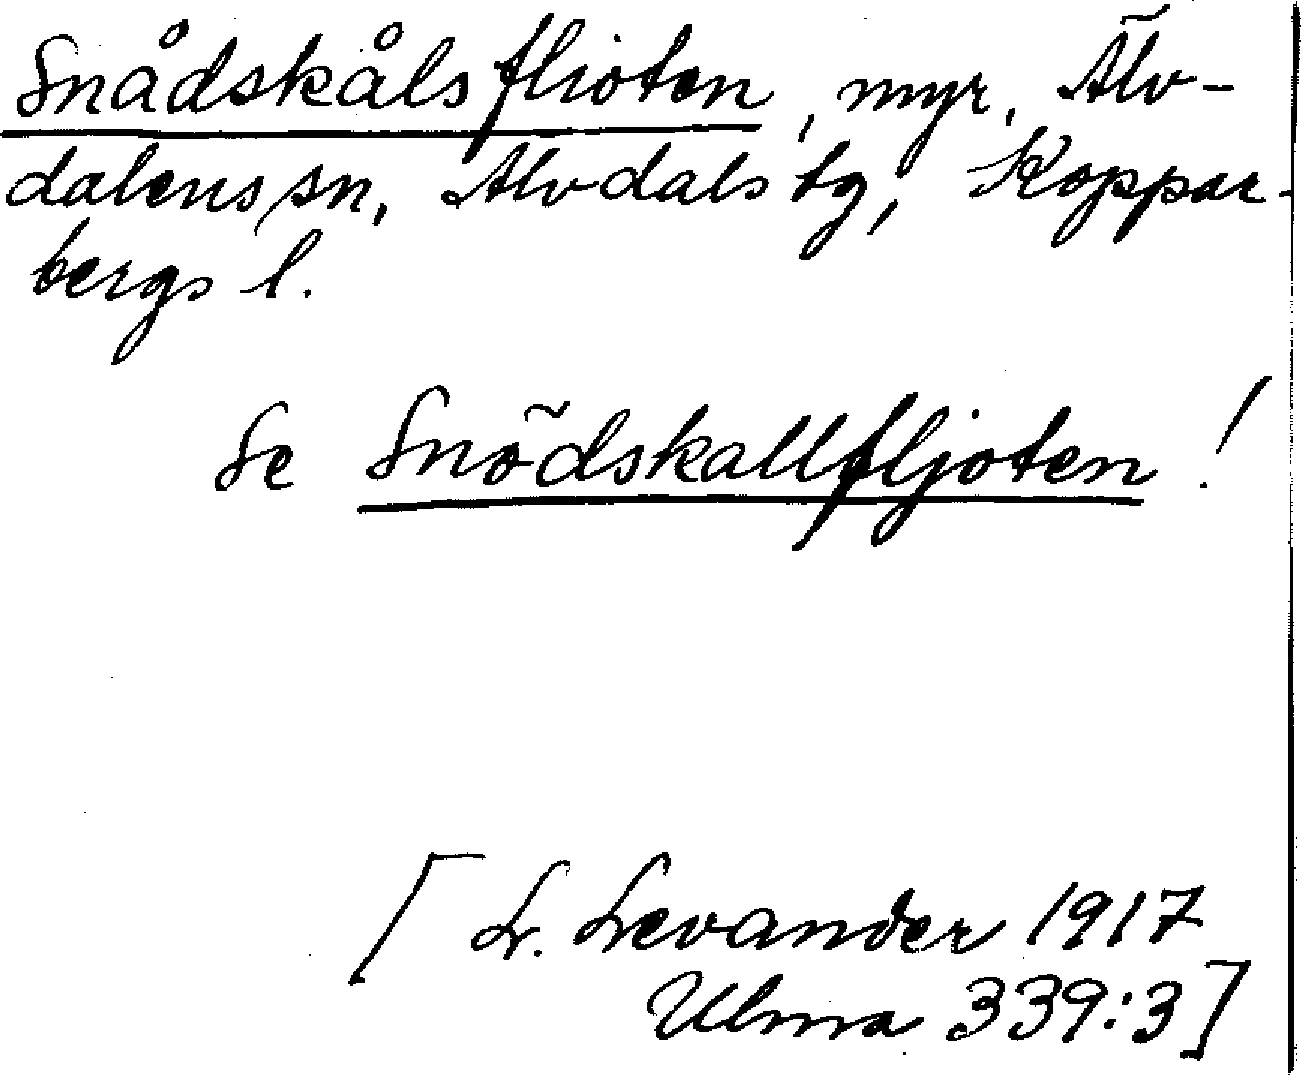 Snådskålsflioten, myr, Älv-
dalens sn, Älvdals tg, Koppar-
bergs l.
Se Snödskallfljoten !
[ L. Levander 1917
Ulma 339:3 ]